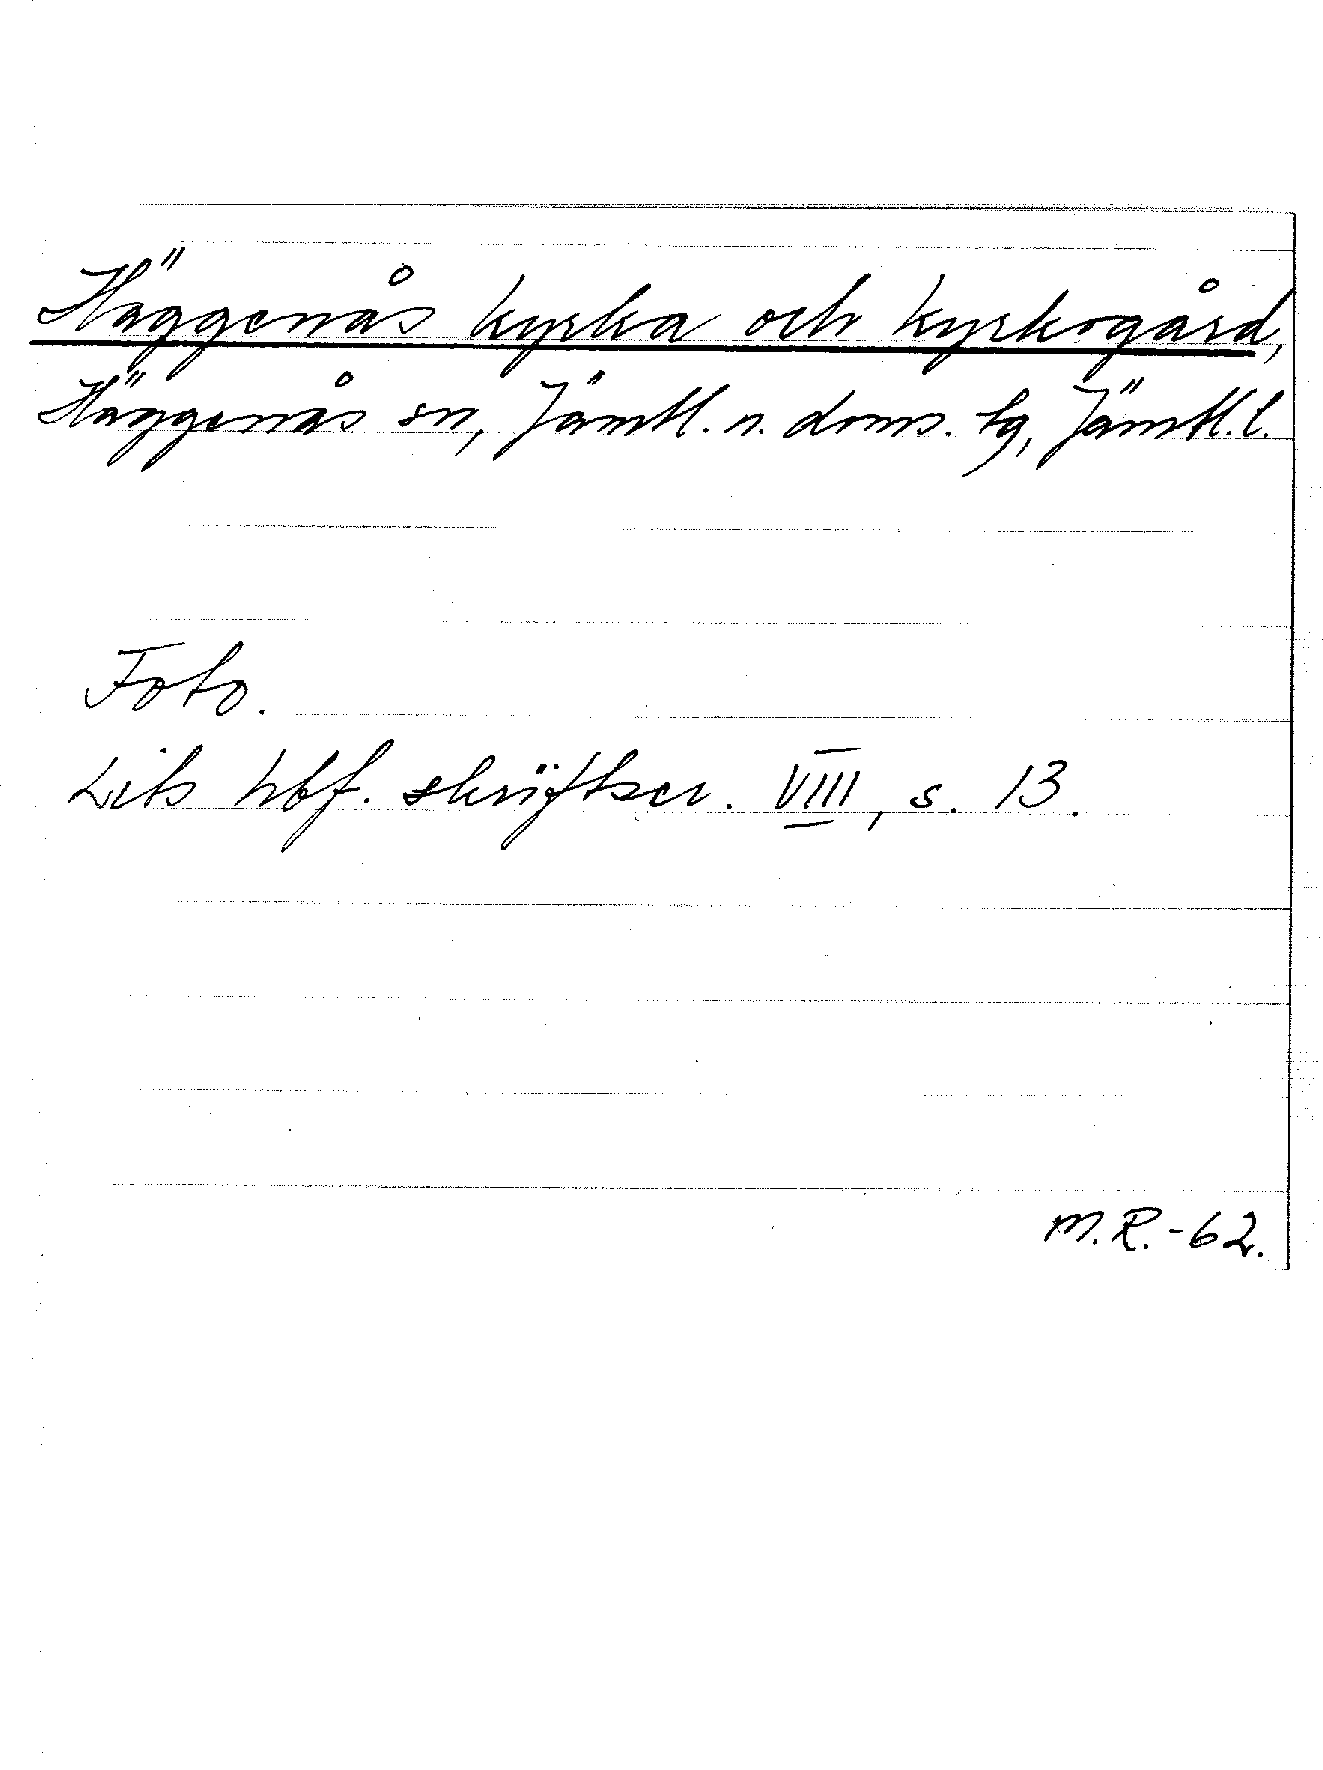 Häggenås kyrka och kyrkogård,
Häggenås sn, Jämtl. n. doms. tg, Jämtl. l.
Foto.
Lits hbf. skriftser. VIII, s. 13.
M.R.-62.